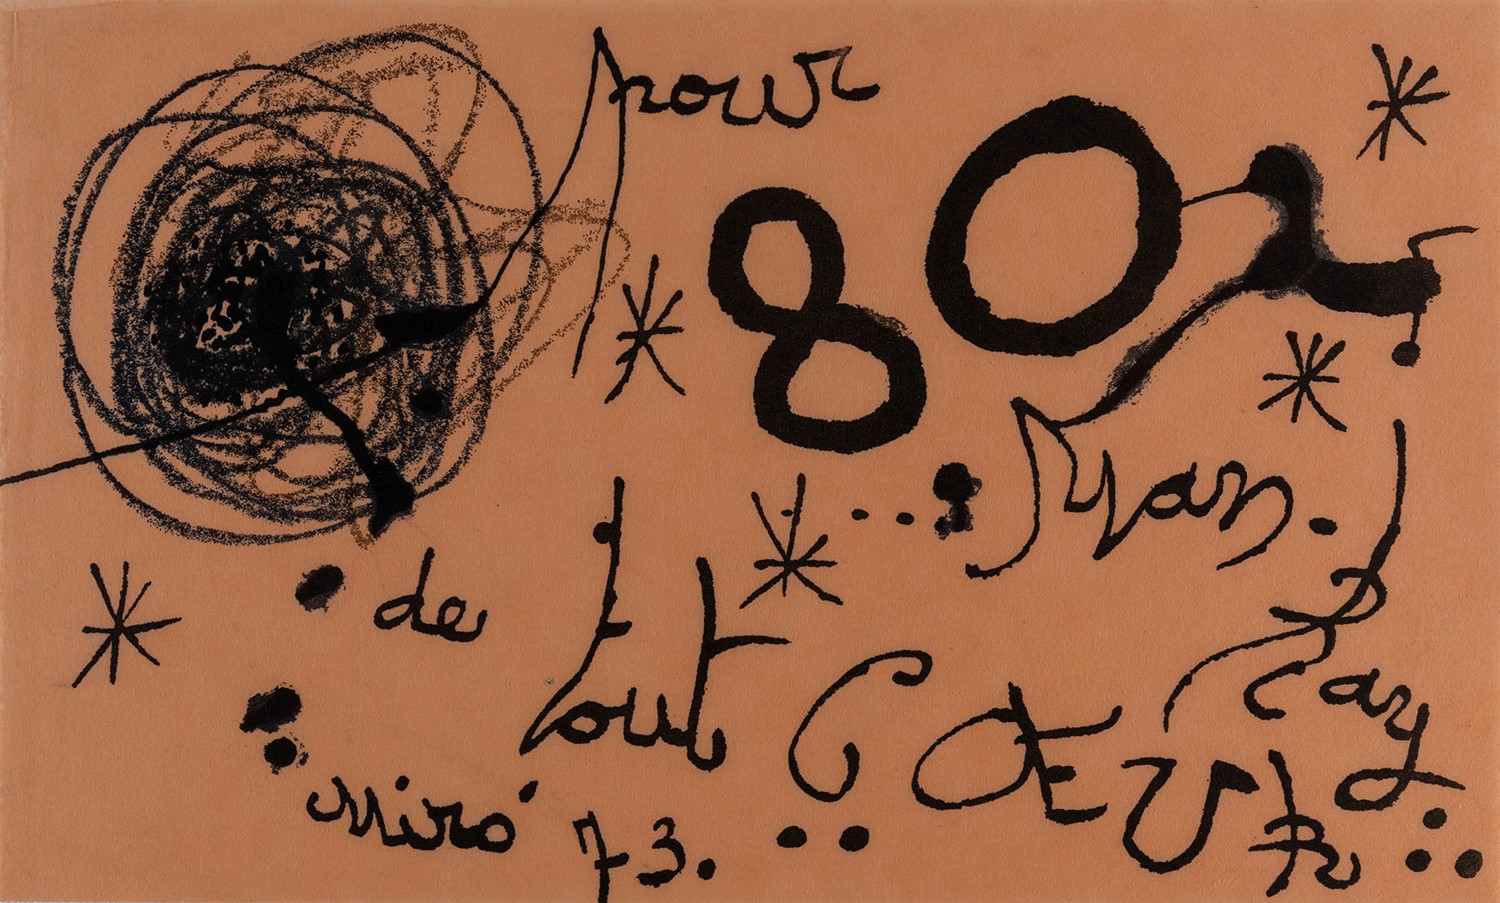 pour
80
Man. Ray
de tout CŒUR
miró 73.